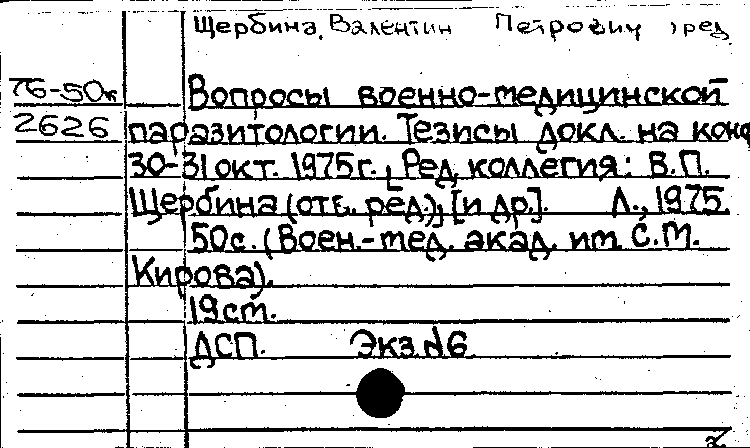 Щербина, Валентин Петрович, ред
76-50к Вопросы военно-медицинской
2626 паразитологии. Тезисы докл. на конф
30-31 окт. 1975г. [Ред. коллегия: В.П.
Щербина (отв. ред.), [и др.]. Л., 1975.
50с. (Воен.-мед. акад. им. С.М.
Кирова).
19см.
ДСП. Экз. №6